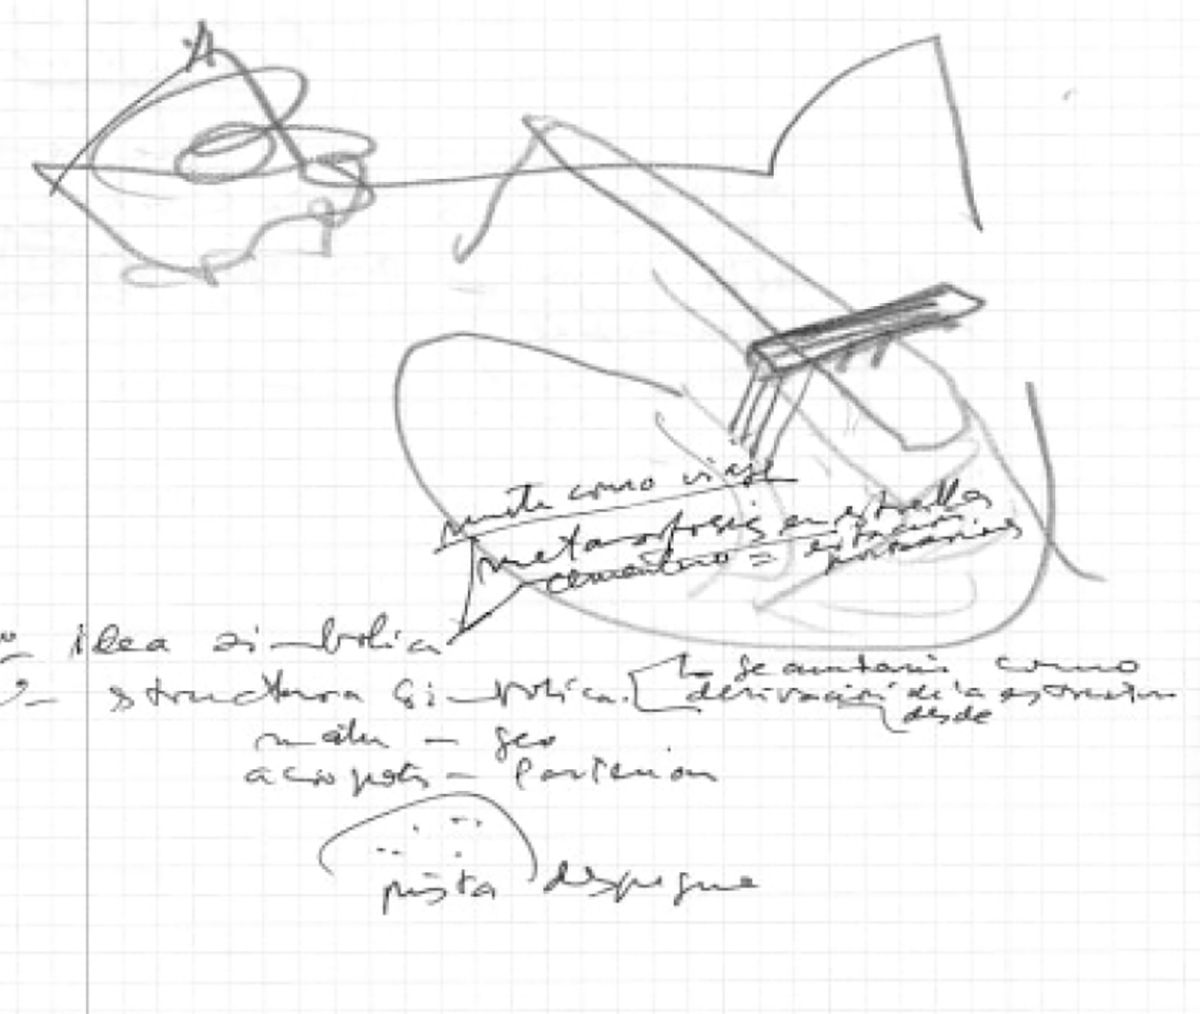 muerte como viaje
metamorfosis en estrella
cementerio = estación
idea simbolica
2- structura simbolica. se
como
derivación de la estructura
desde
geo
acropolis - Partenon
pista despegue